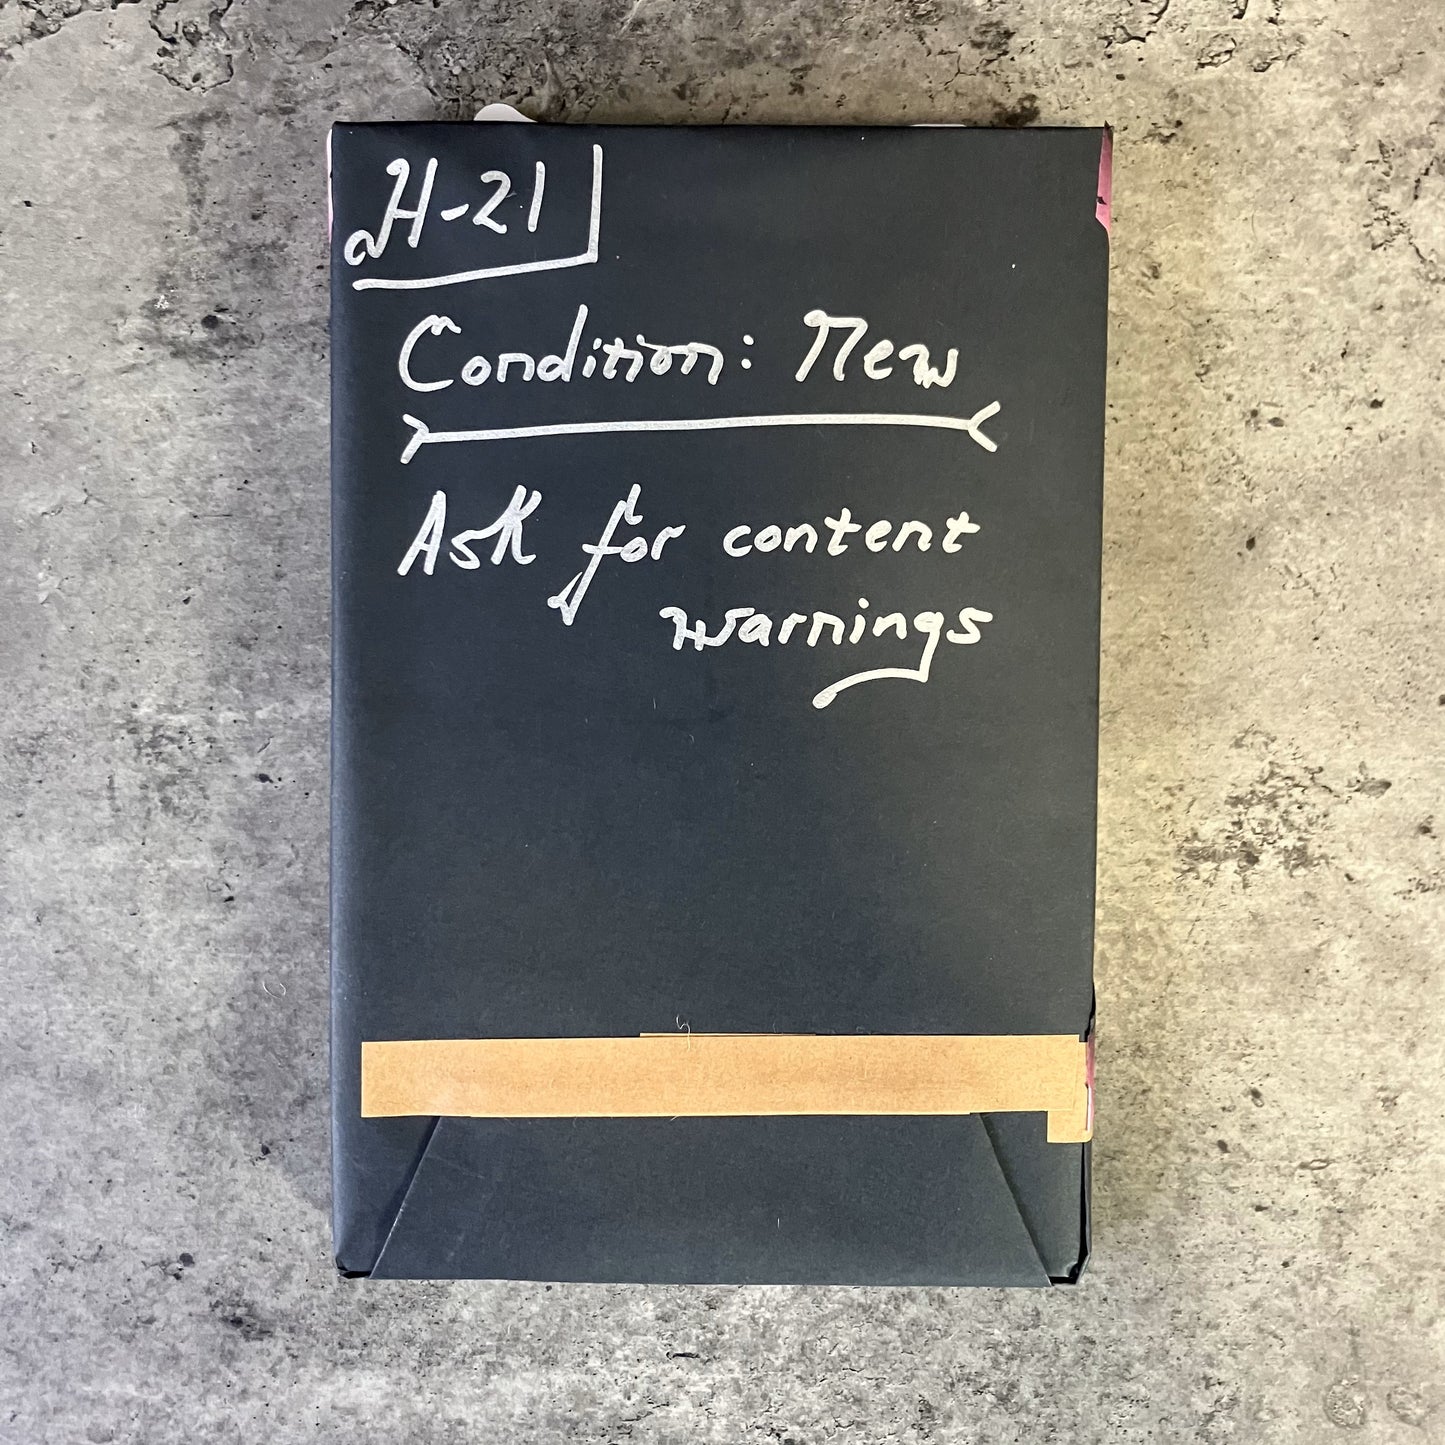 H-21
Condition: New
Ask for content
warnings